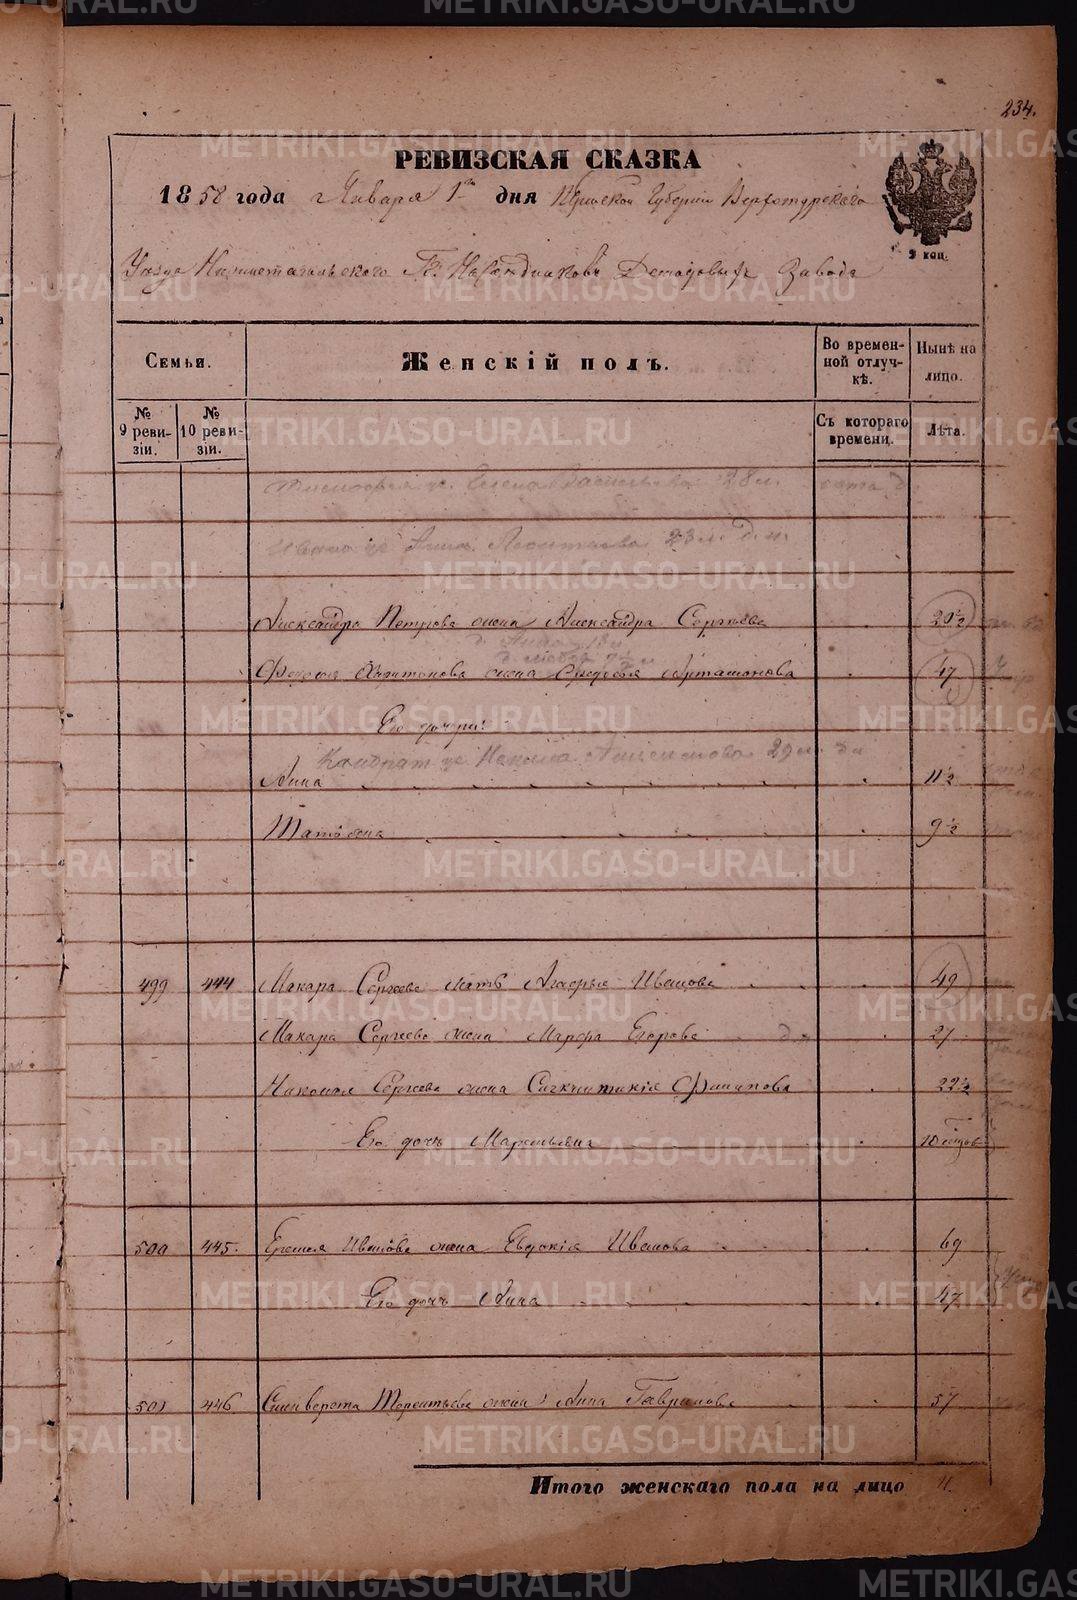 234.
РЕВИЗСКАЯ СКАЗКА
1858 года Января 1го дня Пермской Губернии Верхотурскаго
Уезда Нижнетагильского Гг. Наследниковъ Демидовыхъ Завода
3 коп.
Семьи. Женскій полъ. Во временной отлучкѣ. Нынѣ на лицо.
№ 9 ревизіи. № 10 ревизіи. Съ котораго времени. Лѣта.
Елена Васильева 28 л.
Ивана ж. Анна Леонтьева 23 л.
Александра Петрова жена Александра Сергѣева 20½
д. Анна
Антонова жена Артамонова 47
Его дочери:
Кондрат ж. 29 л.
Анна 11½
Татьяна 9½
499 444 Макара Сергеева мать Агафья Иванова 49
Макара Сергеева жена Марфа Егорова 27
Николая Сергеева жена Филипова 22½
Его дочь 10 месяцов
500 445. Иванова жена Евдокія Иванова 69
Его дочь Анна 47
501 446 Терентьева жена Анна Гаврилова 57
Итого женскаго пола на лицо 11.
METRIKI.GASO-URAL.RU